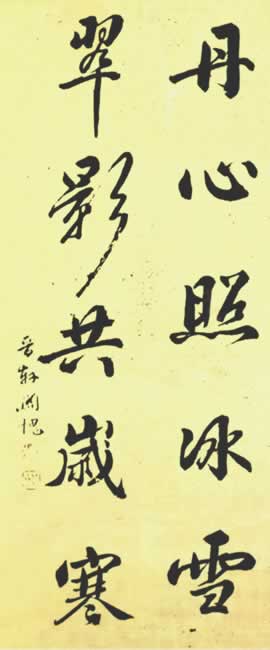 丹心照冰雪
翠影共歲寒
晉軒關槐